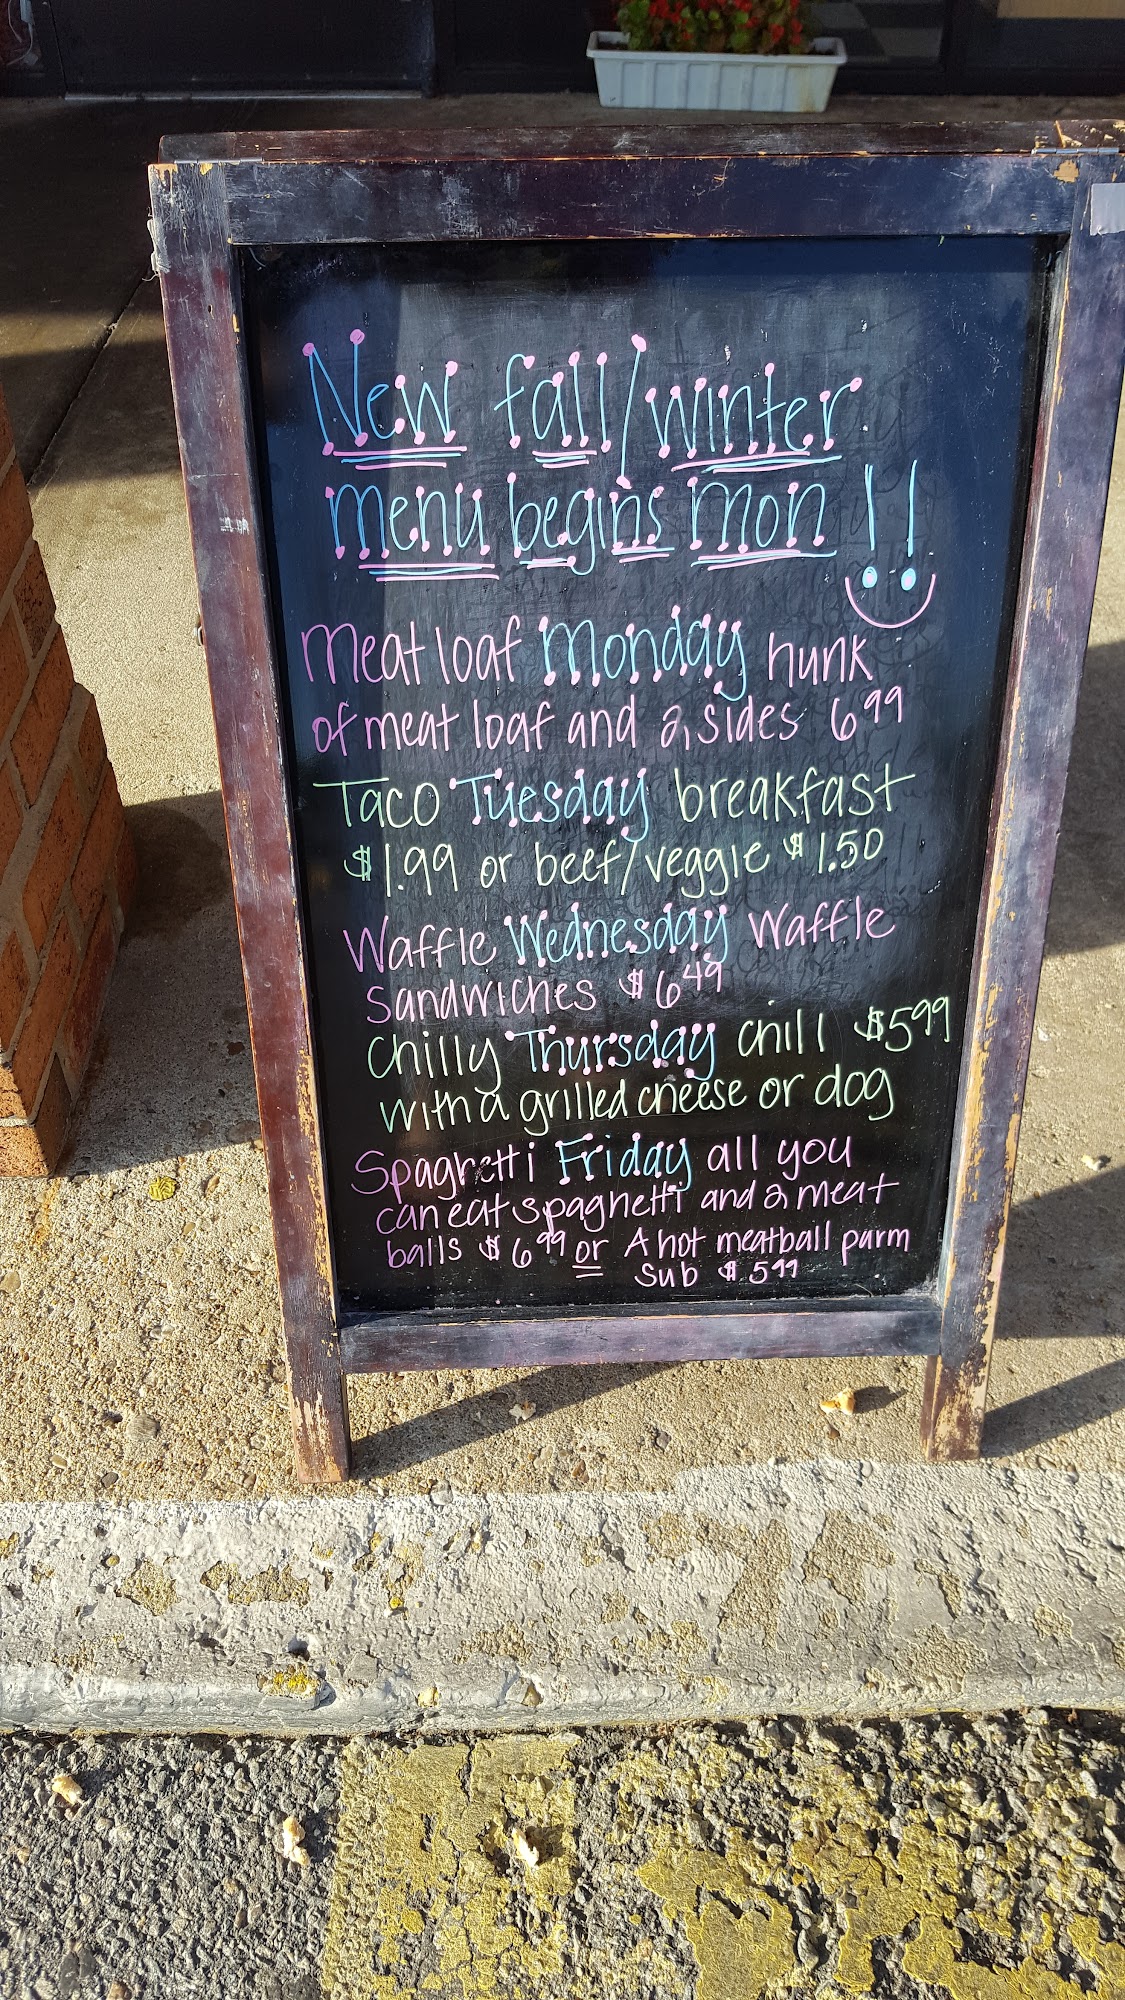 New fall/winter
menu begins mon !!
Meat loaf Monday hunk
of meat loaf and 2 sides 6.99
Taco Tuesday breakfast
$1.99 or beef/veggie $1.50
Waffle Wednesday Waffle
Sandwiches $6.49
Chilly Thursday chili $5.99
with a grilled cheese or dog
Spaghetti Friday all you
can eat spaghetti and 2 meat
balls $6.99 or A hot meatball parm
Sub $5.99